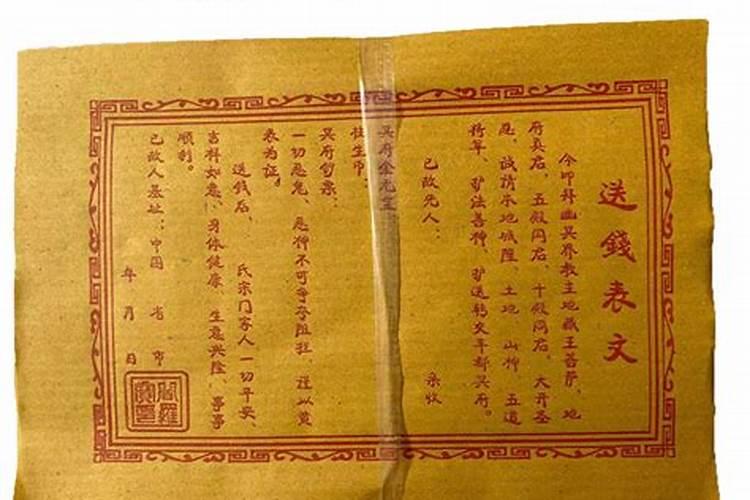 送錢表文
今叩拜幽冥界教主地藏王菩萨、地
府真君、五殿阎君、十殿阎君、大开圣
恩、诚请本地城隍、土地、山神、五道
将军、护法善神、护送转交丰都冥府。
已故先人： 亲收
冥府金元宝
往生币：
冥府钞票：
一切恶鬼、恶神不可争夺阻拦，谨以黄
表为证。
送钱后、 氏宗门客人一切平安、
吉祥如意、身体健康、生意兴隆、事事
顺利。
已故人墓址：中国 省 市
年 月 日